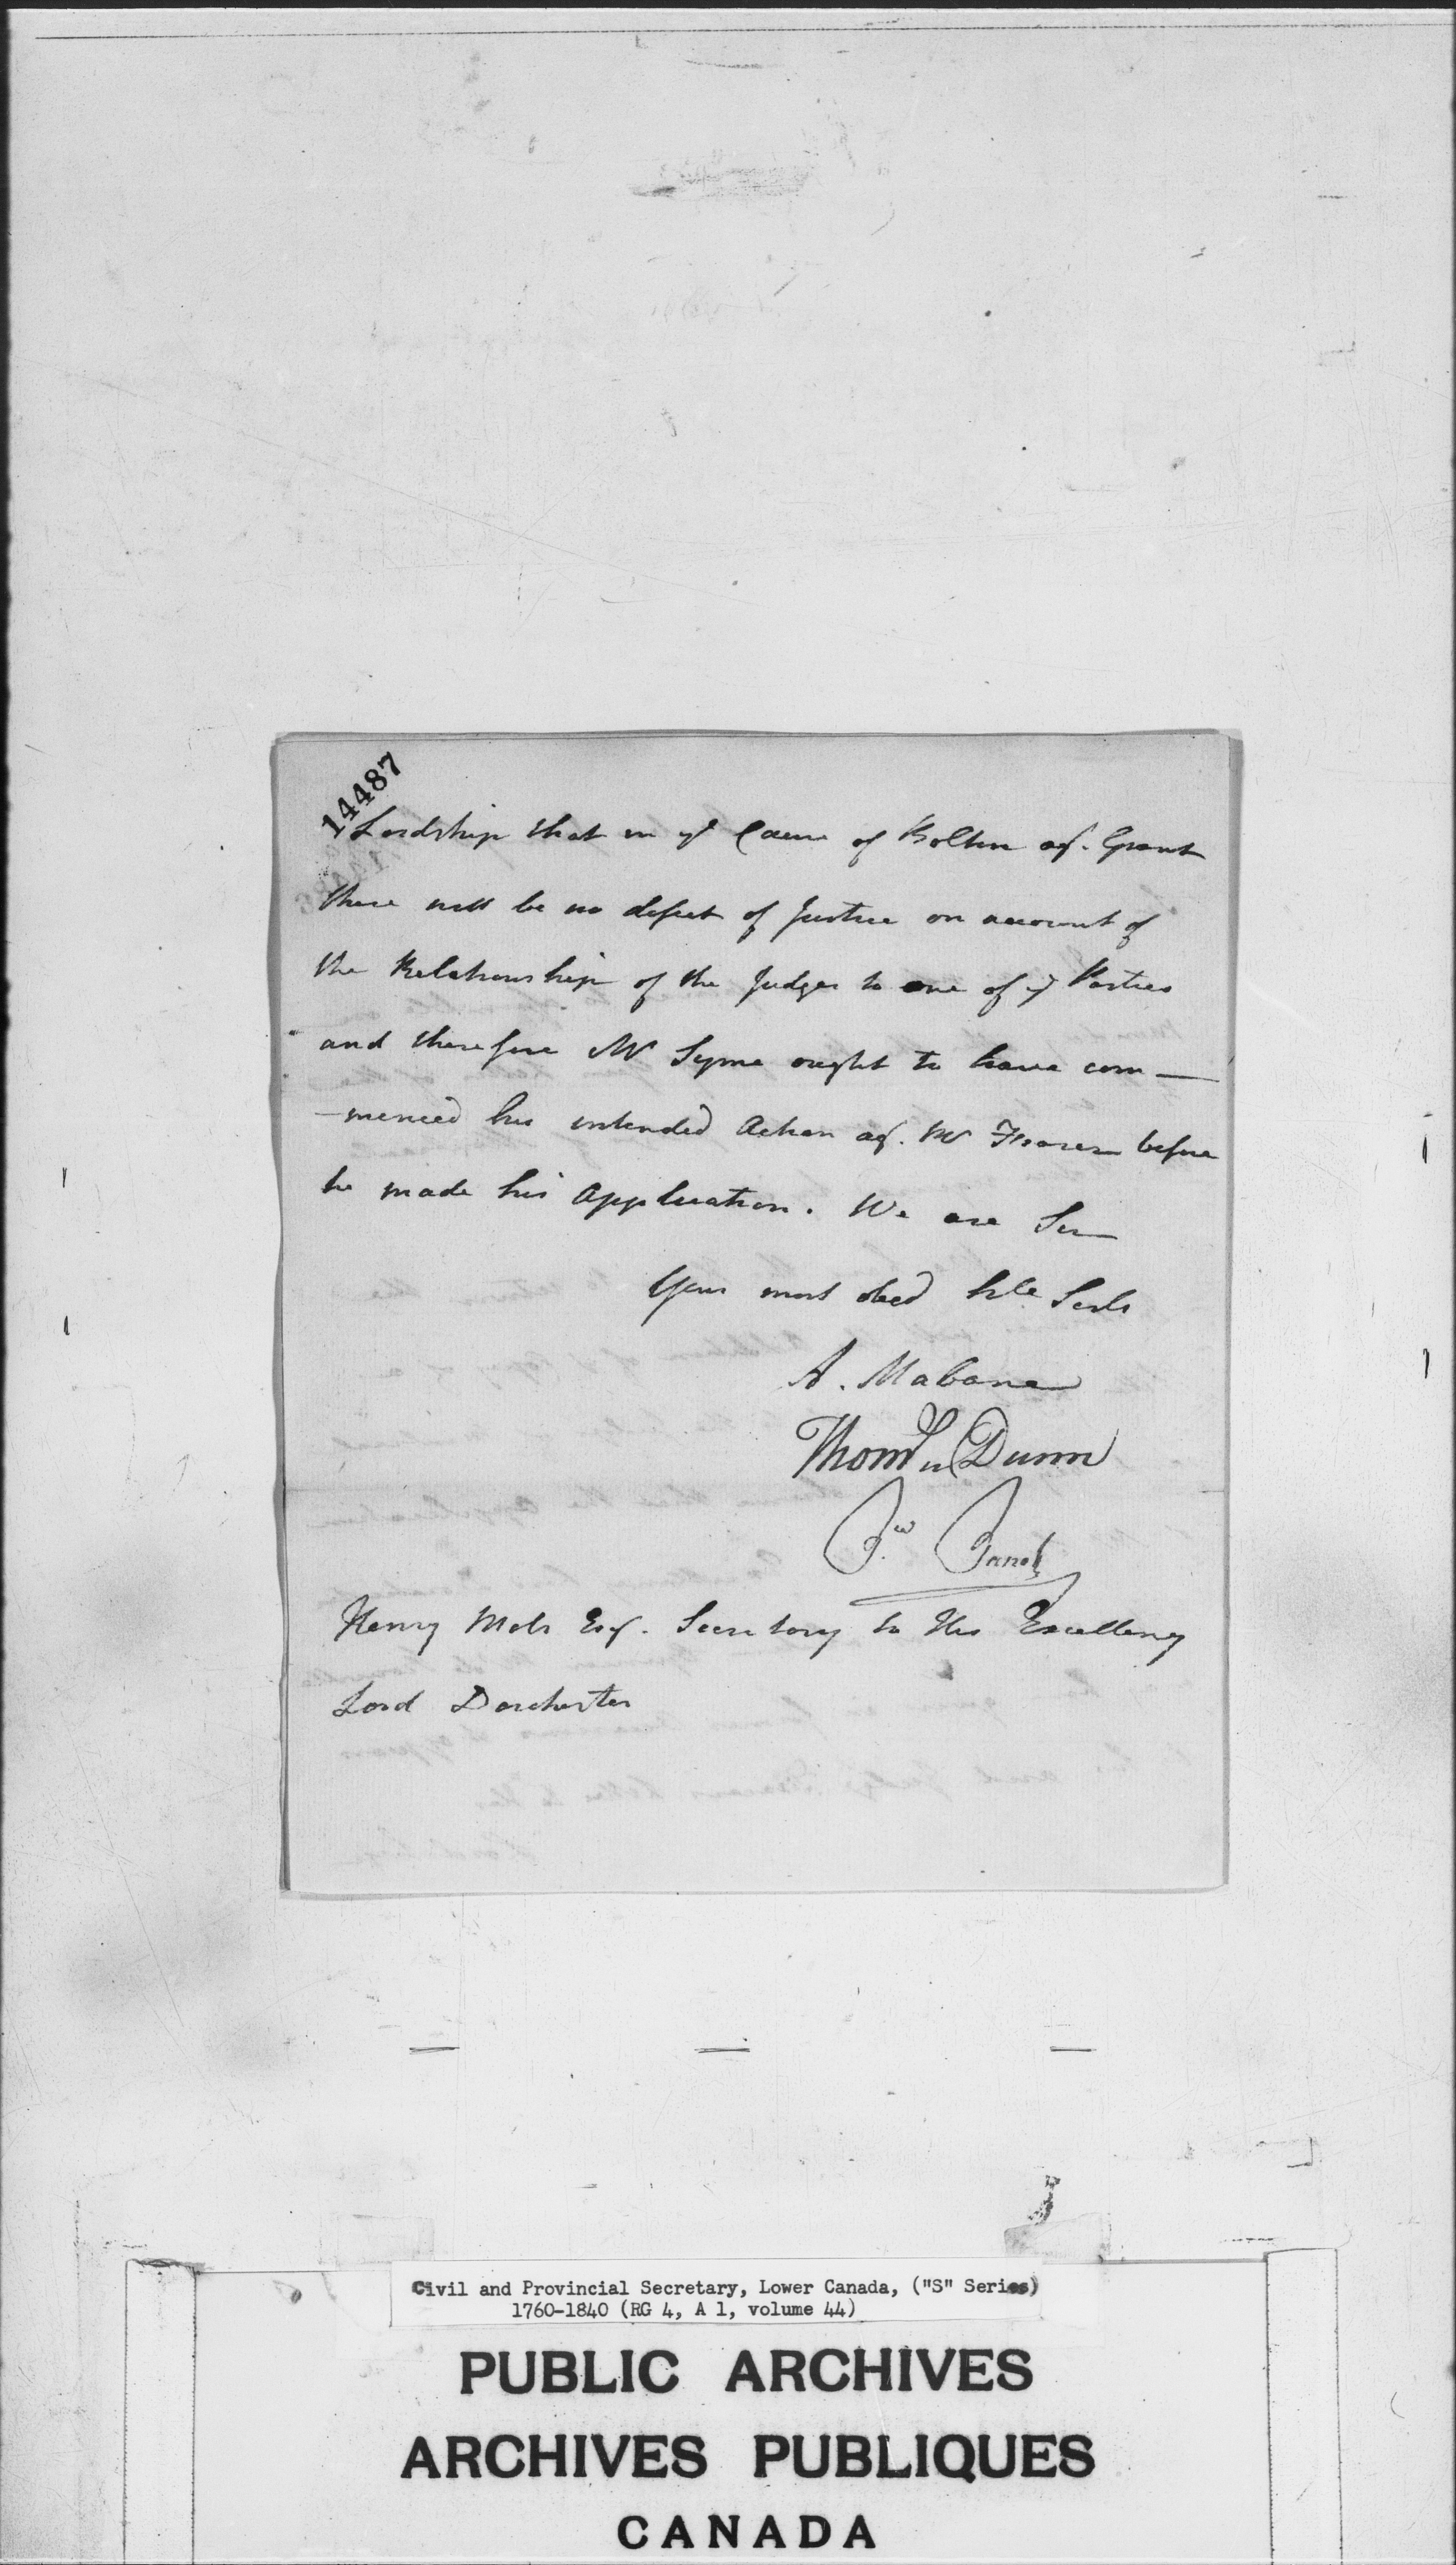 14487
Lordship that in ye Cause of Bolton agt. Grant
there will be no defect of Justice on account of
the Relationship of the Judges to one of ye Parties
and therefore Mr Syme ought to have com—
—menced his intended Action agt. Mr Fraser before
he made his Application. We are Sir
Your most obed hble Servts
A. Mabane
Thoms Dunn
Henry Esqr. Secretary to His Excellency
Lord Dorchester
Civil and Provincial Secretary, Lower Canada, ("S" Series)
1760-1840 (RG 4, A 1, volume 44)
PUBLIC ARCHIVES
ARCHIVES PUBLIQUES
CANADA